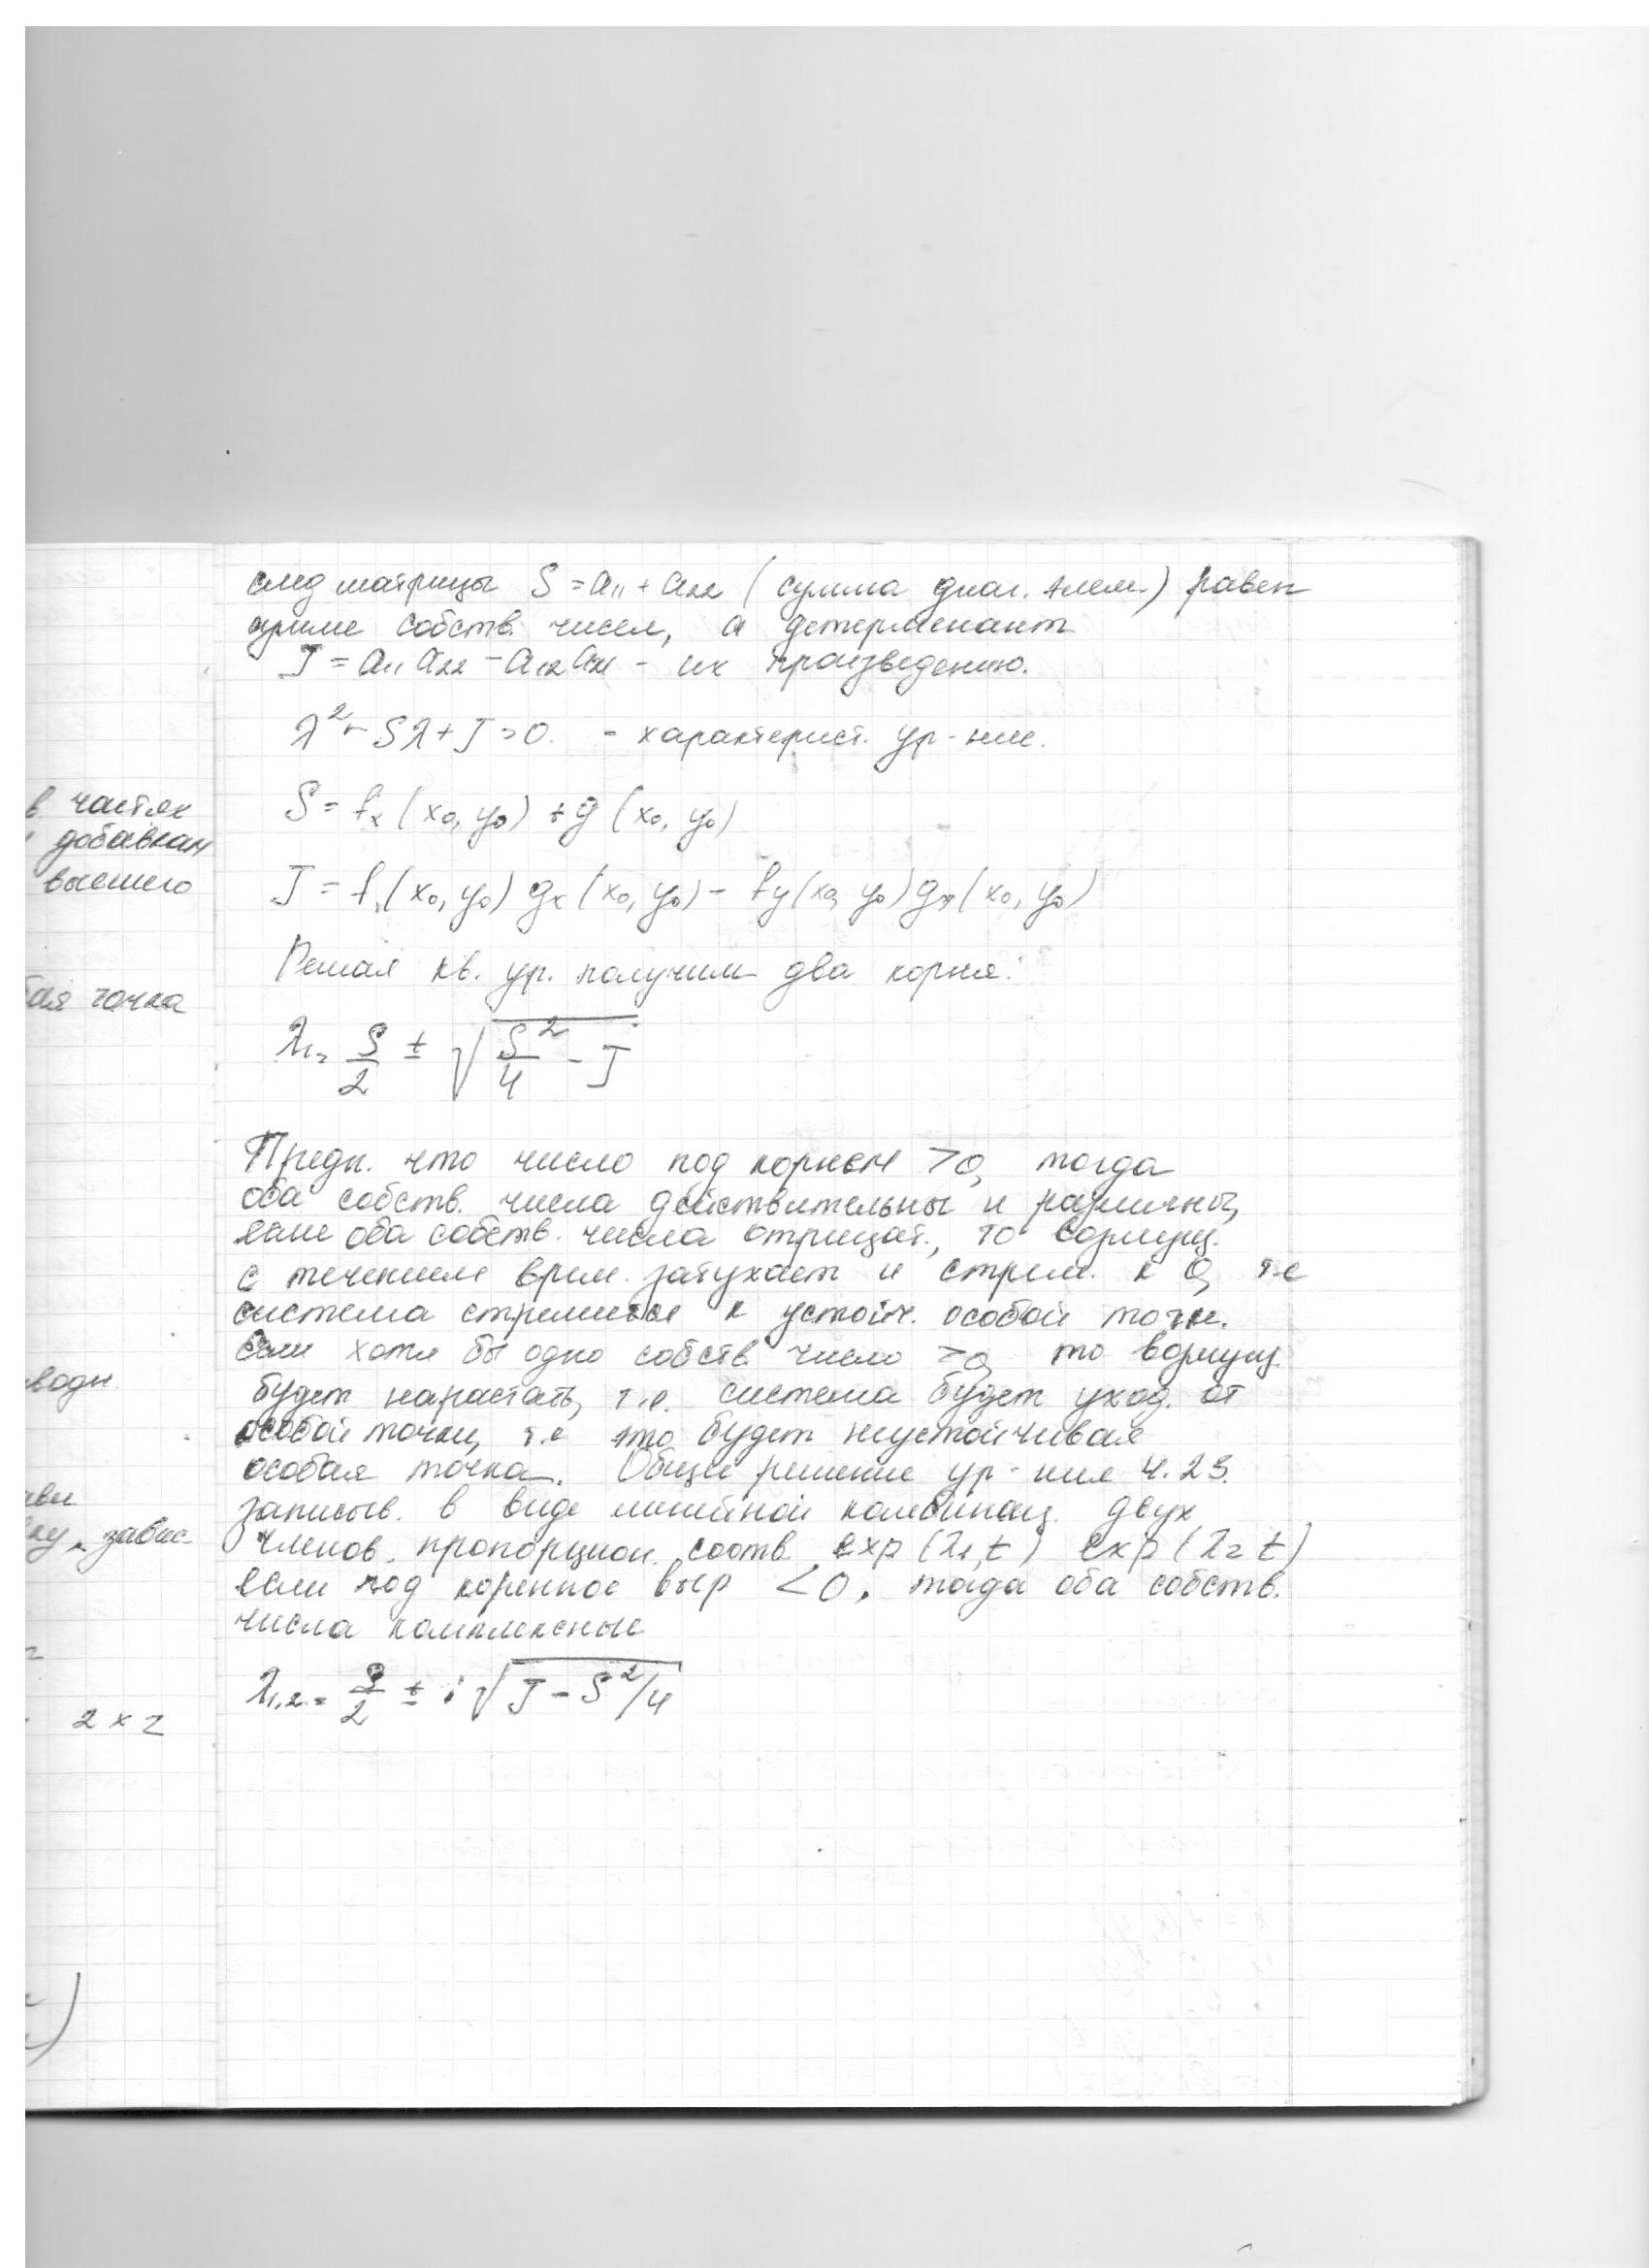 в частях
добавкам
высшего
точка
2 x 2
след матрицы S = a₁₁ + a₂₂ (сумма диаг. элем.) равен
сумме собств. чисел, а детерменант
J = a₁₁ a₂₂ - a₁₂ a₂₁ - их произведению.
λ² - Sλ + J = 0. - характерист. ур-ние.
S = fₓ (x₀, y₀) + g (x₀, y₀)
J = f (x₀, y₀) gₓ (x₀, y₀) - fy (x₀, y₀) gₓ (x₀, y₀)
Решая кв. ур. получим два корня:
λ₁₂ = S/2 ± √(S²/4 - J)
Предп. что число под корнем >0, тогда
оба собств. числа действительны и различны,
если оба собств. числа отрицат., то
с течением врем. затухает и стрем. к 0, т.е
система стремится к устойч. особой точке.
Если хотя бы одно собств. число >0, то
будет нарастать, т.е. система будет уход. от
особой точки, т.е это будет неустойчивая
особая точка. Общее решение ур-ния 4.23.
записыв. в виде линейной комбинац. двух
членов, пропорцион. соотв. exp (λ₁,t) exp (λ₂ t)
если под коренное выр <0, тогда оба собств.
числа комплексные
λ₁,₂ = S/2 ± i √(J - S²/4)